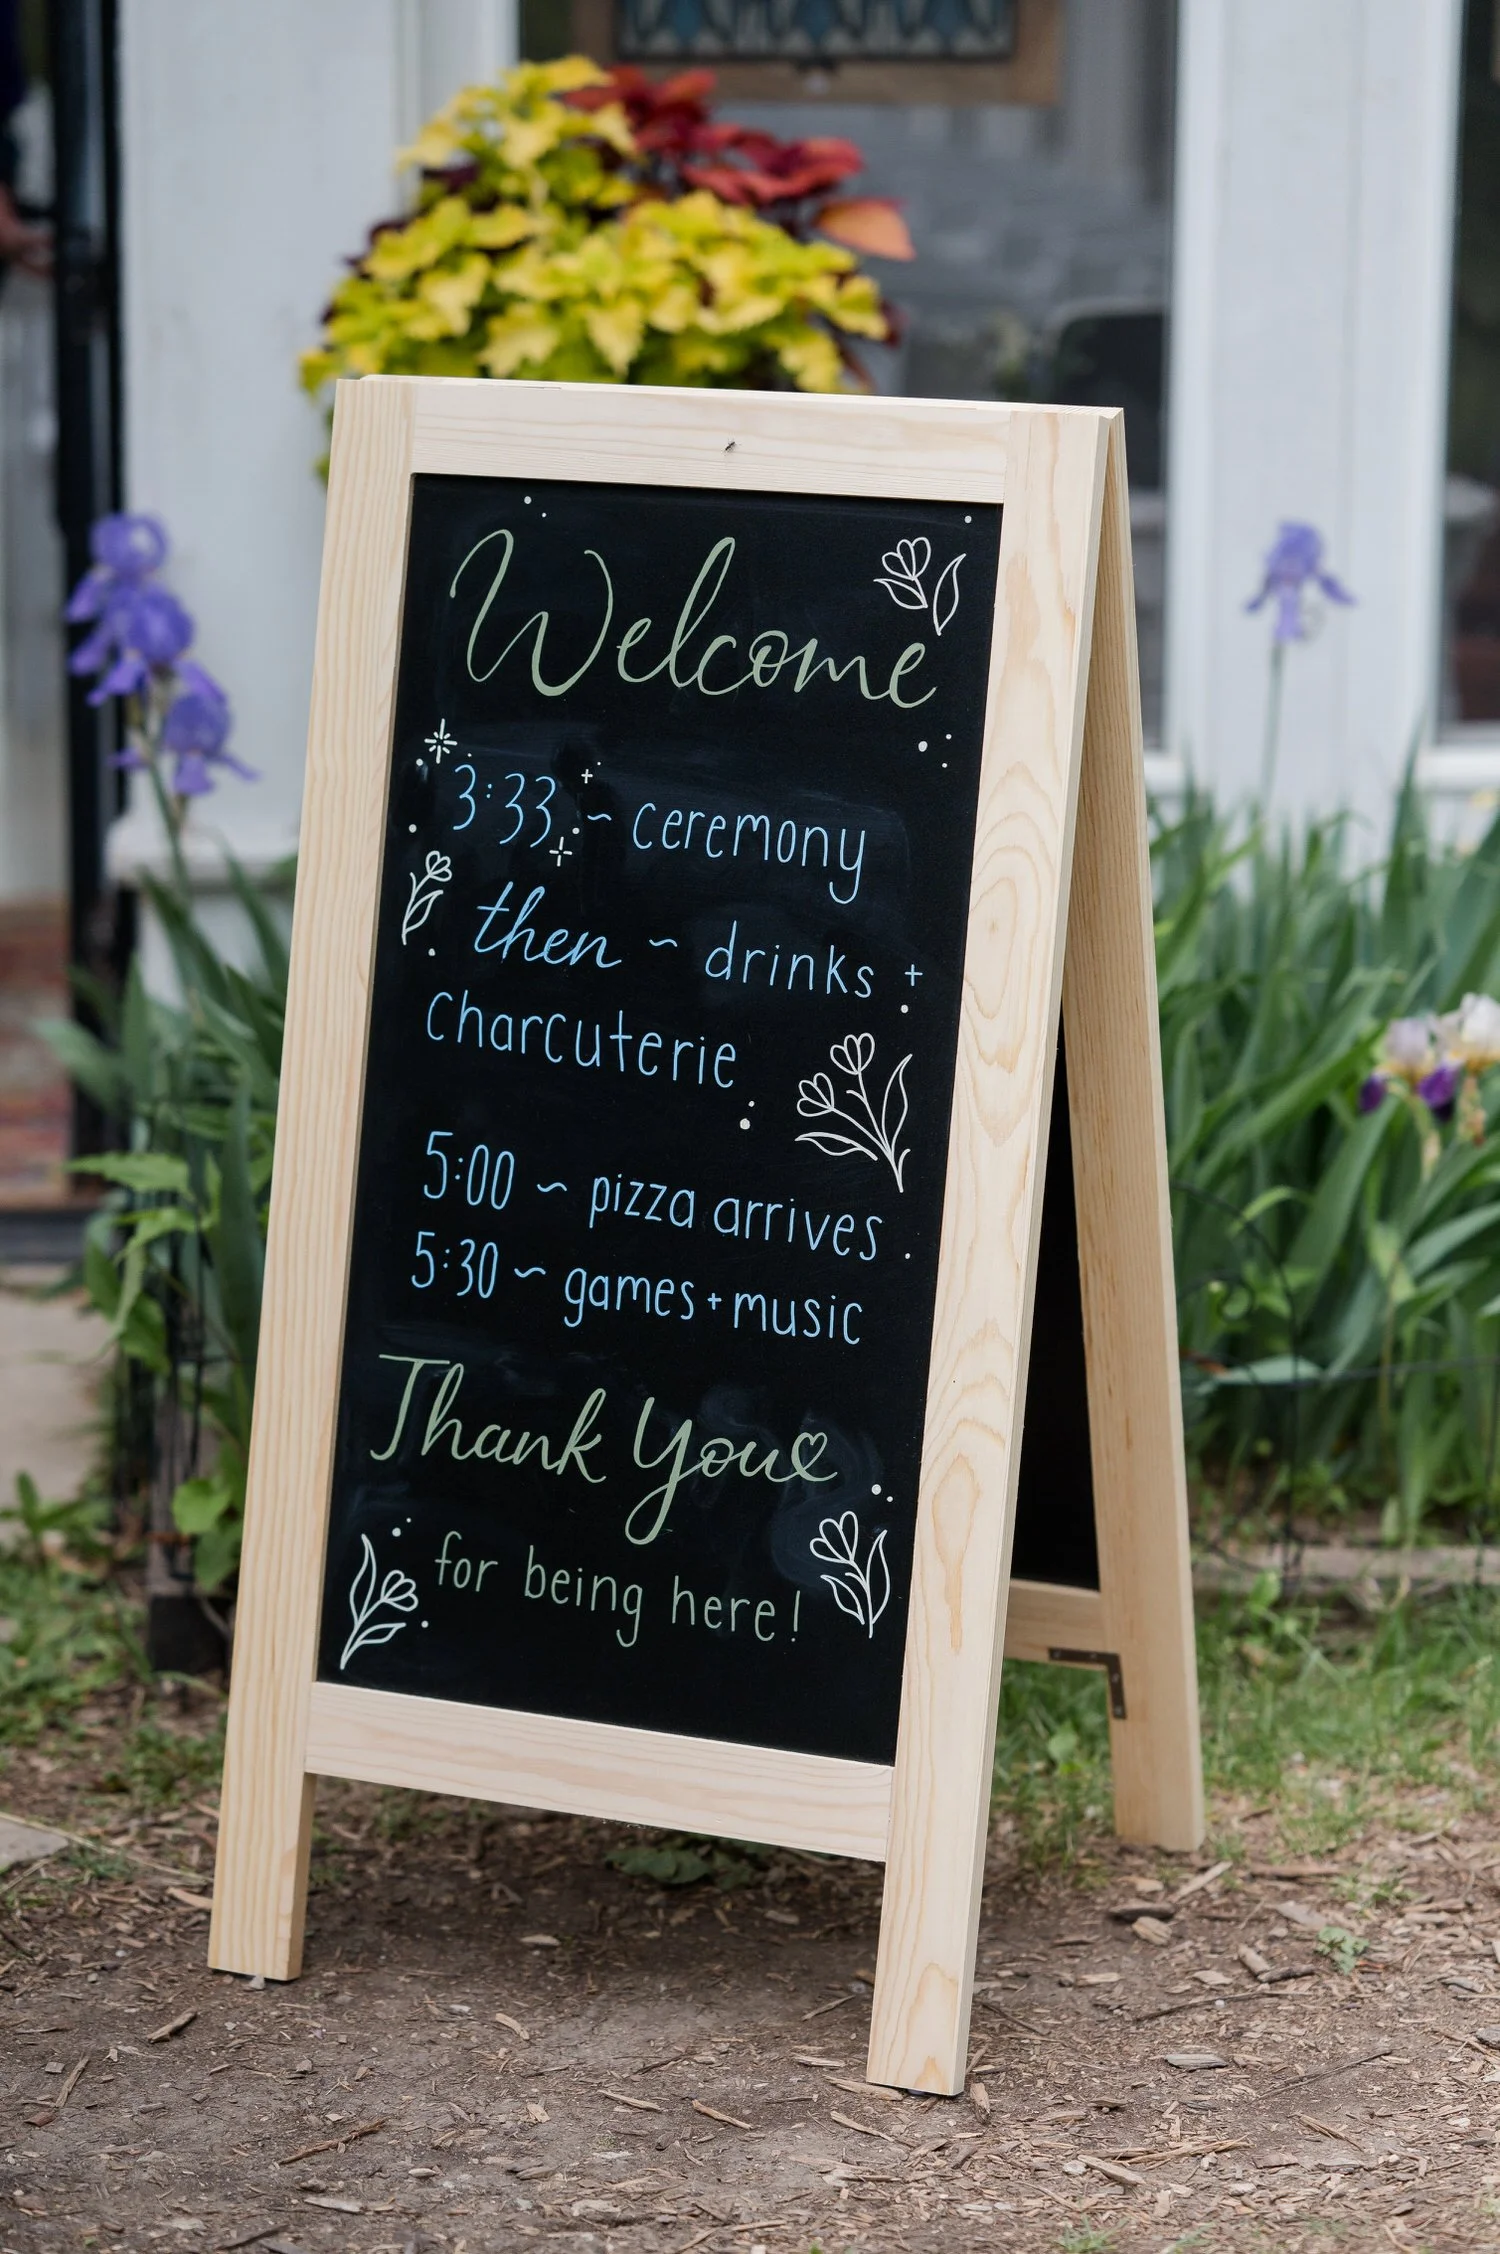 Welcome
3:33 ~ ceremony
then ~ drinks +
charcuterie
5:00 ~ pizza arrives
5:30 ~ games + music
Thank You
for being here!